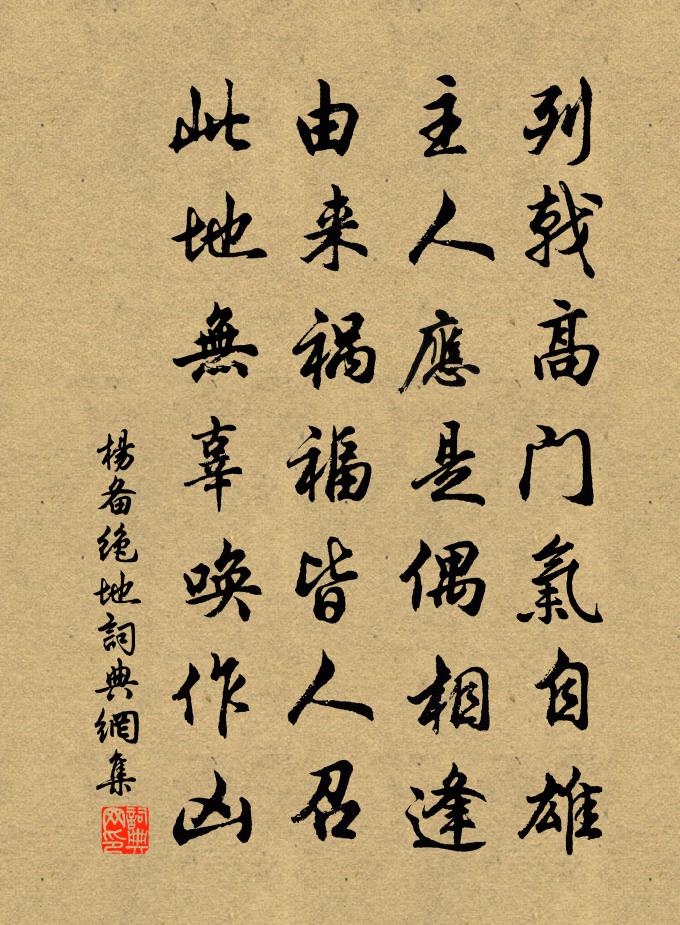 列戟高门氣自雄
主人應是偶相逢
由来祸福皆人召
此地無辜唤作凶
楊备绝地詞典網集
詞典网印